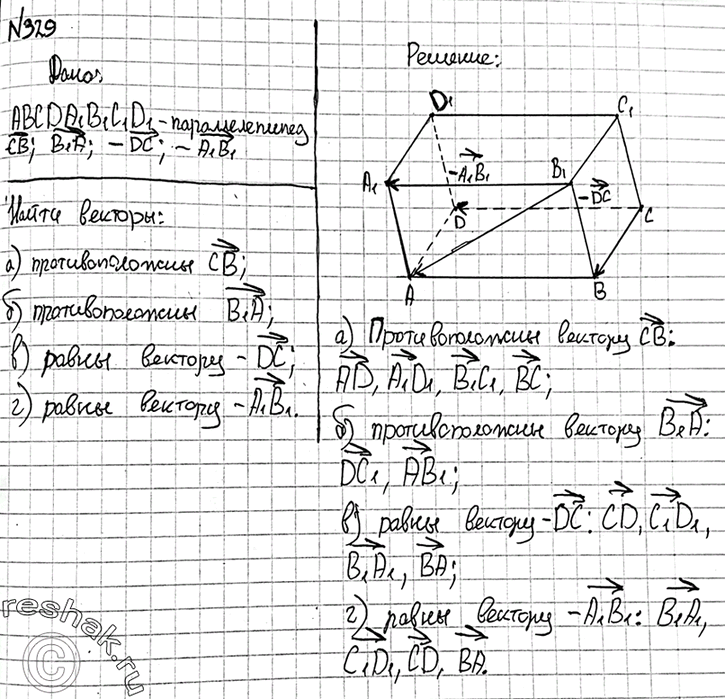 №329
Дано:
ABCDA₁B₁C₁D₁ - параллелепипед
CB; B₁A; -DC; -A₁B₁
Найти векторы:
а) противоположны CB;
б) противоположны B₁A;
в) равны вектору -DC;
г) равны вектору -A₁B₁.
Решение:
D₁
C₁
A₁
-A₁B₁
B₁
-DC
D
C
A
B
а) Противоположны вектору CB:
AD, A₁D₁, B₁C₁, BC;
б) противоположны вектору B₁A:
DC₁, AB₁;
в) равны вектору -DC: CD, C₁D₁,
B₁A₁, BA;
г) равны вектору -A₁B₁: B₁A₁,
C₁D₁, CD, BA.
reshak.ru
©